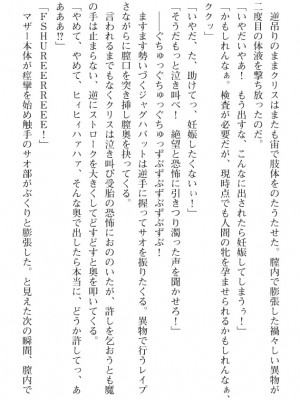 逆吊りのままクリスはまたも宙で肢体をのたうたせた。膣内で膨張した禍々しい異物が
二度目の体液を撃ち放ったのだ。
「いやだせいっ！　もう出すな、こんなに出されたら妊娠してしまうぅ！」
「かもしれんなぁ。検査が必要だが、現時点でも人間の牝を孕ませられるかもしれんなぁ、
クックッ」
「いやだ、た、助けてっ、妊娠したくないぃ！」
「そうだもっと泣き叫べ！　絶望と恐怖に引きつり濁った声を聞かせろ！」
――ぐちゅっぐちゅっぐちゅっずぶずぶずぶずぶ！
ますます勢いづくジャグバットは逆手に握ってサオを振りたくる。異物で行うレイプ
さながらに膣口を突き挿し膣奥を抉ってくる。
言われるまでもなくクリスは泣き叫び受胎の恐怖におののいたが、許しを乞おうとも魔
の手は止まらない、逆にストロークを大きくしてどすどすと奥を叩いてくる。
「やめて、やめて、ヒィヒィハァハァ、そんな奥で出したら本当に、どうか許してっ、あ
あああ⁉」
「FSHUREERREEEE！」
マザー本体が痙攣を始め触手のサオ部がぷくりと膨張した。と見えた次の瞬間、膣内で